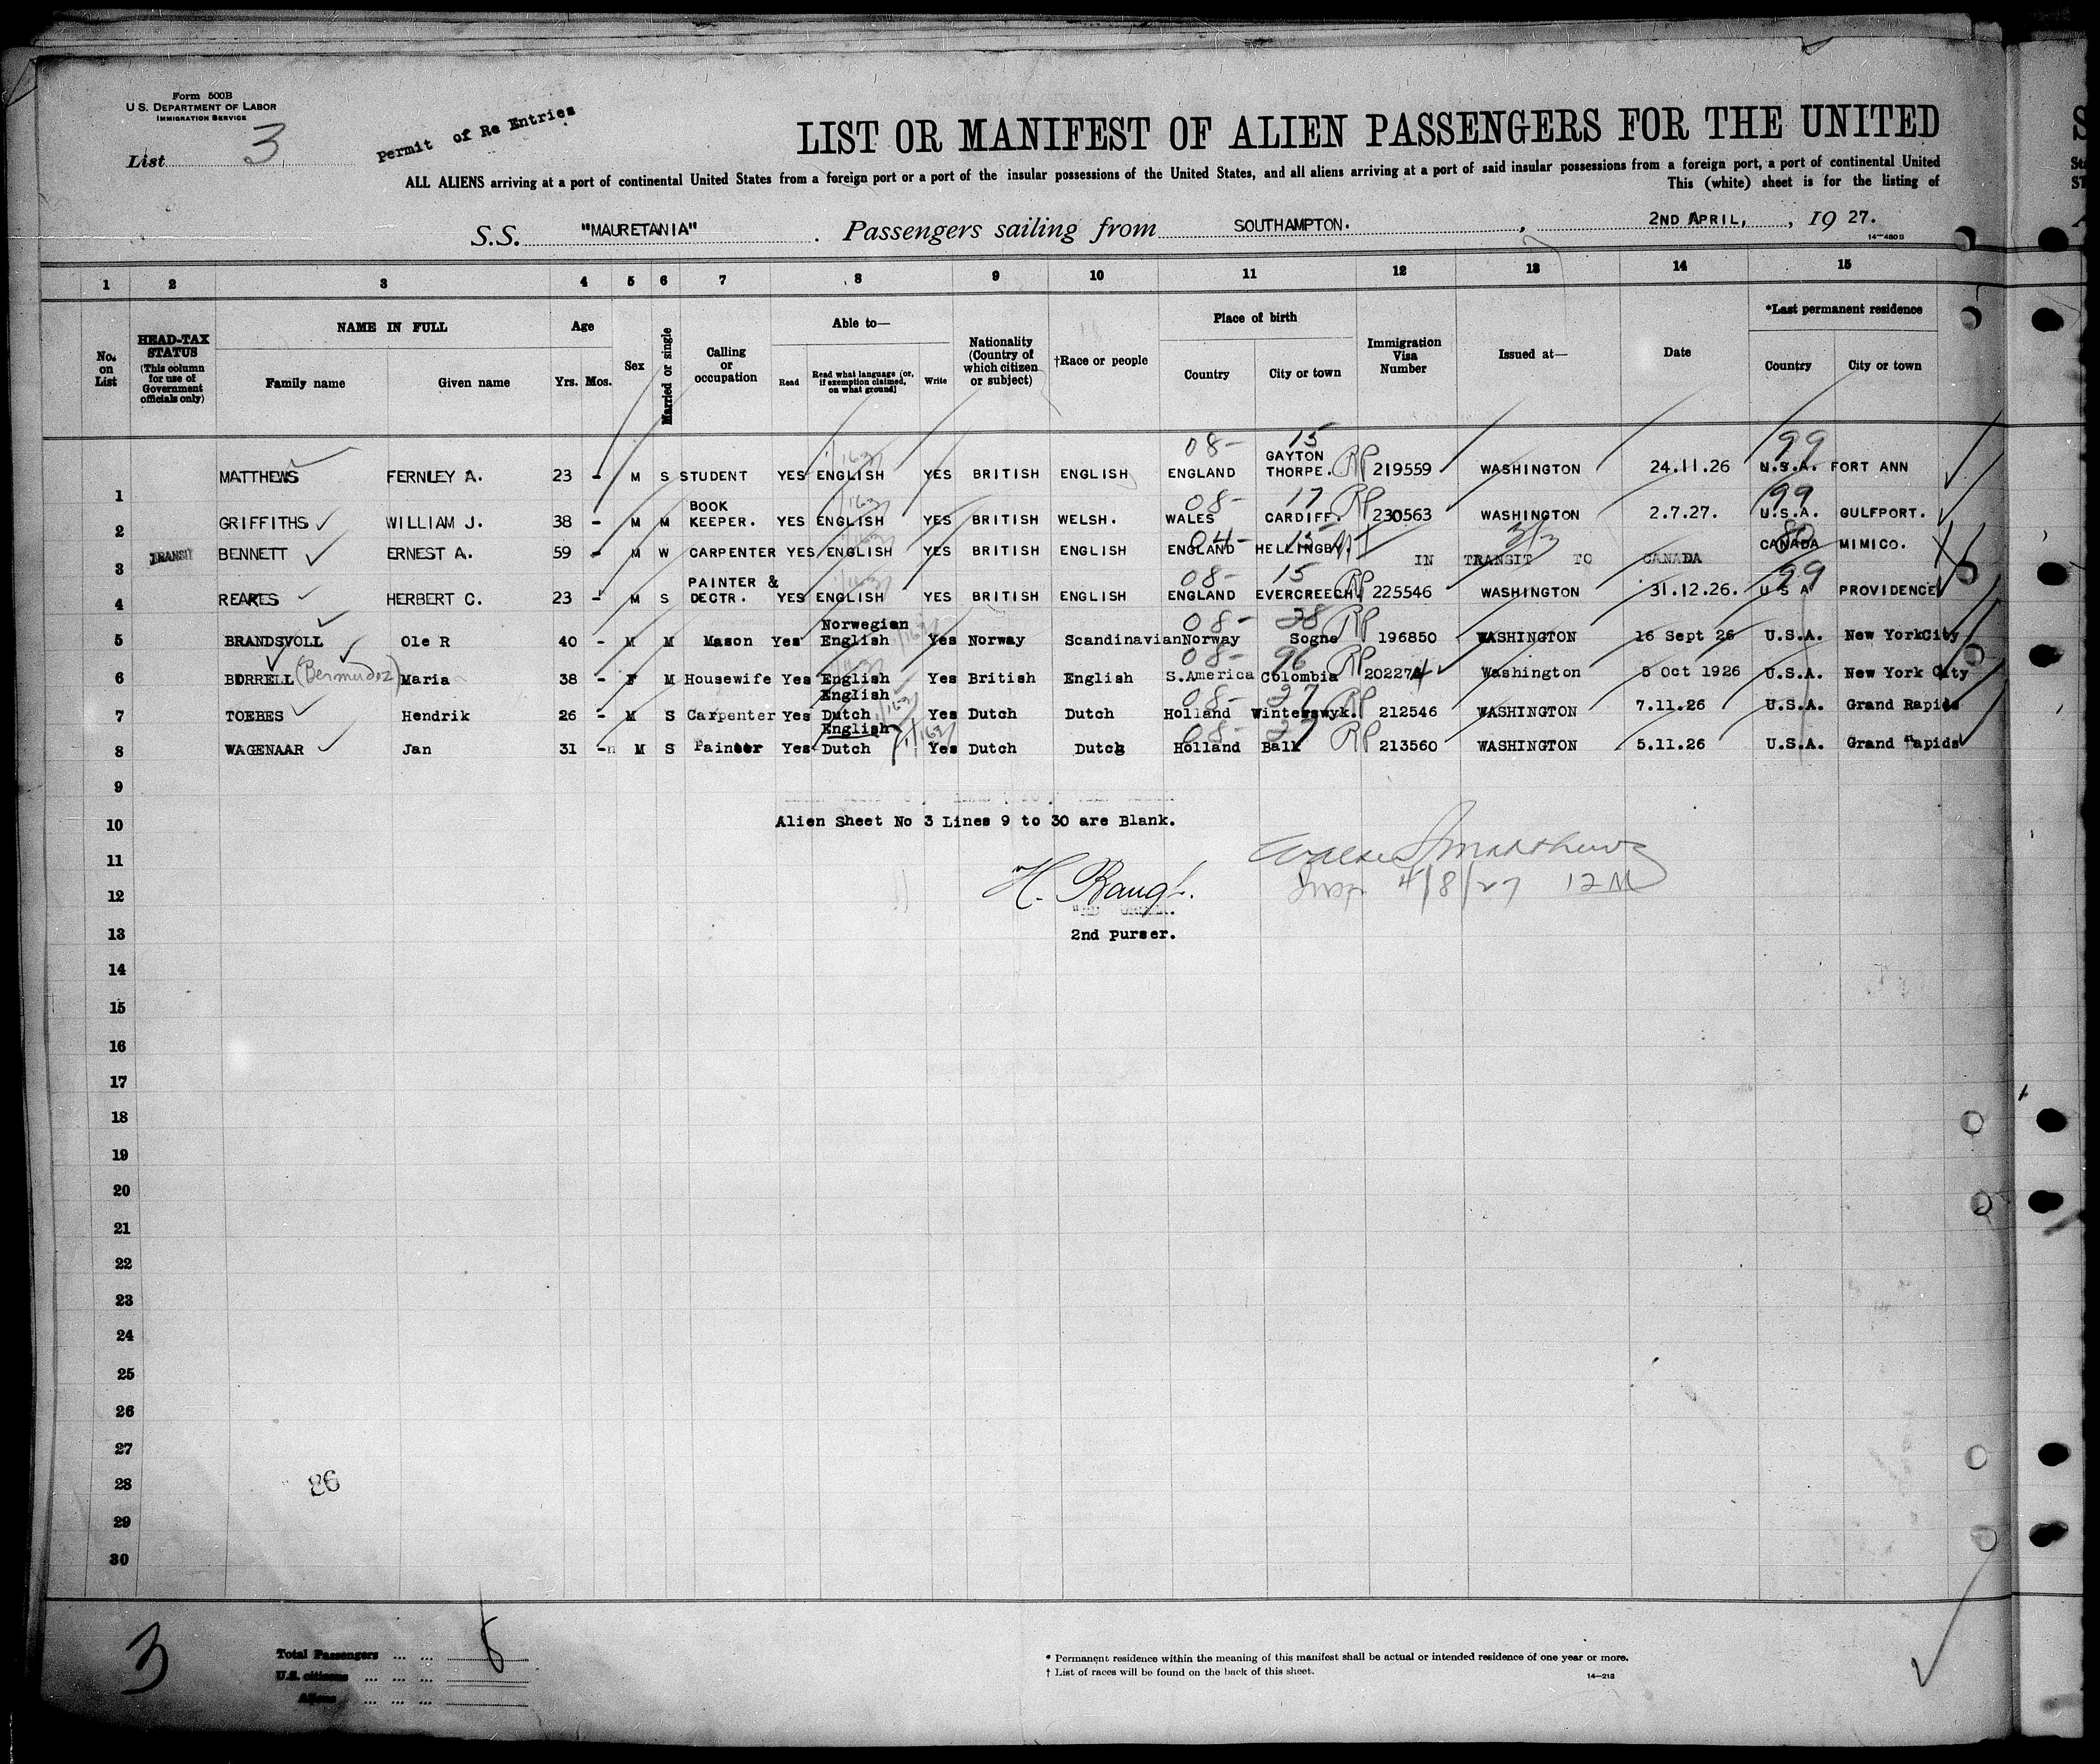 Form 500B
U.S. DEPARTMENT OF LABOR
IMMIGRATION SERVICE
List 3
Permit of Re Entries
LIST OR MANIFEST OF ALIEN PASSENGERS FOR THE UNITED
ALL ALIENS arriving at a port of continental United States from a foreign port or a port of the insular possessions of the United States, and all aliens arriving at a port of said insular possessions from a foreign port, a port of continental United
This (white) sheet is for the listing of
S.S. "MAURETANIA". Passengers sailing from SOUTHAMPTON. , 2ND APRIL, , 19 27.
14-480B
1 2 3 4 5 6 7 8 9 10 11 12 13 14 15
No. on List
HEAD-TAX STATUS (This column for use of Government officials only)
NAME IN FULL
Family name Given name
Age
Yrs. Mos.
Sex
Married or single
Calling or occupation
Able to—
Read Read what language (or, if exemption claimed, on what ground) Write
Nationality (Country of which citizen or subject)
†Race or people
Place of birth
Country City or town
Immigration Visa Number
Issued at—
Date
*Last permanent residence
Country City or town
08- 15 99
1 MATTHEWS FERNLEY A. 23 - M S STUDENT YES ENGLISH YES BRITISH ENGLISH ENGLAND GAYTON THORPE. RP 219559 WASHINGTON 24.11.26 U.S.A. FORT ANN
08- 17 99
2 GRIFFITHS WILLIAM J. 38 - M M BOOK KEEPER. YES ENGLISH YES BRITISH WELSH. WALES CARDIFF. RP 230563 WASHINGTON 2.7.27. U.S.A. GULFPORT.
04- 15 3/3 80
3 TRANSIT BENNETT ERNEST A. 59 - M W CARPENTER YES ENGLISH YES BRITISH ENGLISH ENGLAND HELLINGBY. IN TRANSIT TO CANADA CANADA MIMICO.
08- 15 99
4 REAKES HERBERT C. 23 - M S PAINTER & DECTR. YES ENGLISH YES BRITISH ENGLISH ENGLAND EVERCREECH. RP 225546 WASHINGTON 31.12.26. U S A PROVIDENCE
08- 28
5 BRANDSVOLL Ole R 40 - M M Mason Yes Norwegian English Yes Norway Scandinavian Norway Sogne RP 196850 WASHINGTON 16 Sept 26 U.S.A. New YorkCity
08- 96
6 BORRELL (Bermudez) Maria 38 - F M Housewife Yes English Yes British English S.America Colombia RP 202274 Washington 5 Oct 1926 U.S.A. New York City
08- 27
7 TOEBES Hendrik 26 - M S Carpenter Yes English Dutch Yes Dutch Dutch Holland Winterswyk. RP 212546 WASHINGTON 7.11.26 U.S.A. Grand Rapids
08- 27
8 WAGENAAR Jan 31 - M S Painter Yes English Dutch Yes Dutch Dutch Holland Balk RP 213560 WASHINGTON 5.11.26 U.S.A. Grand Rapids
9
10 Alien Sheet No 3 Lines 9 to 30 are Blank.
11
12 4/8/27 12 M
13 2nd purser.
14
15
16
17
18
19
20
21
22
23
24
25
26
27
28 86
29
30
3
Total Passengers ... ... 8
U.S. citizens ... ... ...
Aliens ... ... ...
* Permanent residence within the meaning of this manifest shall be actual or intended residence of one year or more.
† List of races will be found on the back of this sheet.
14-213